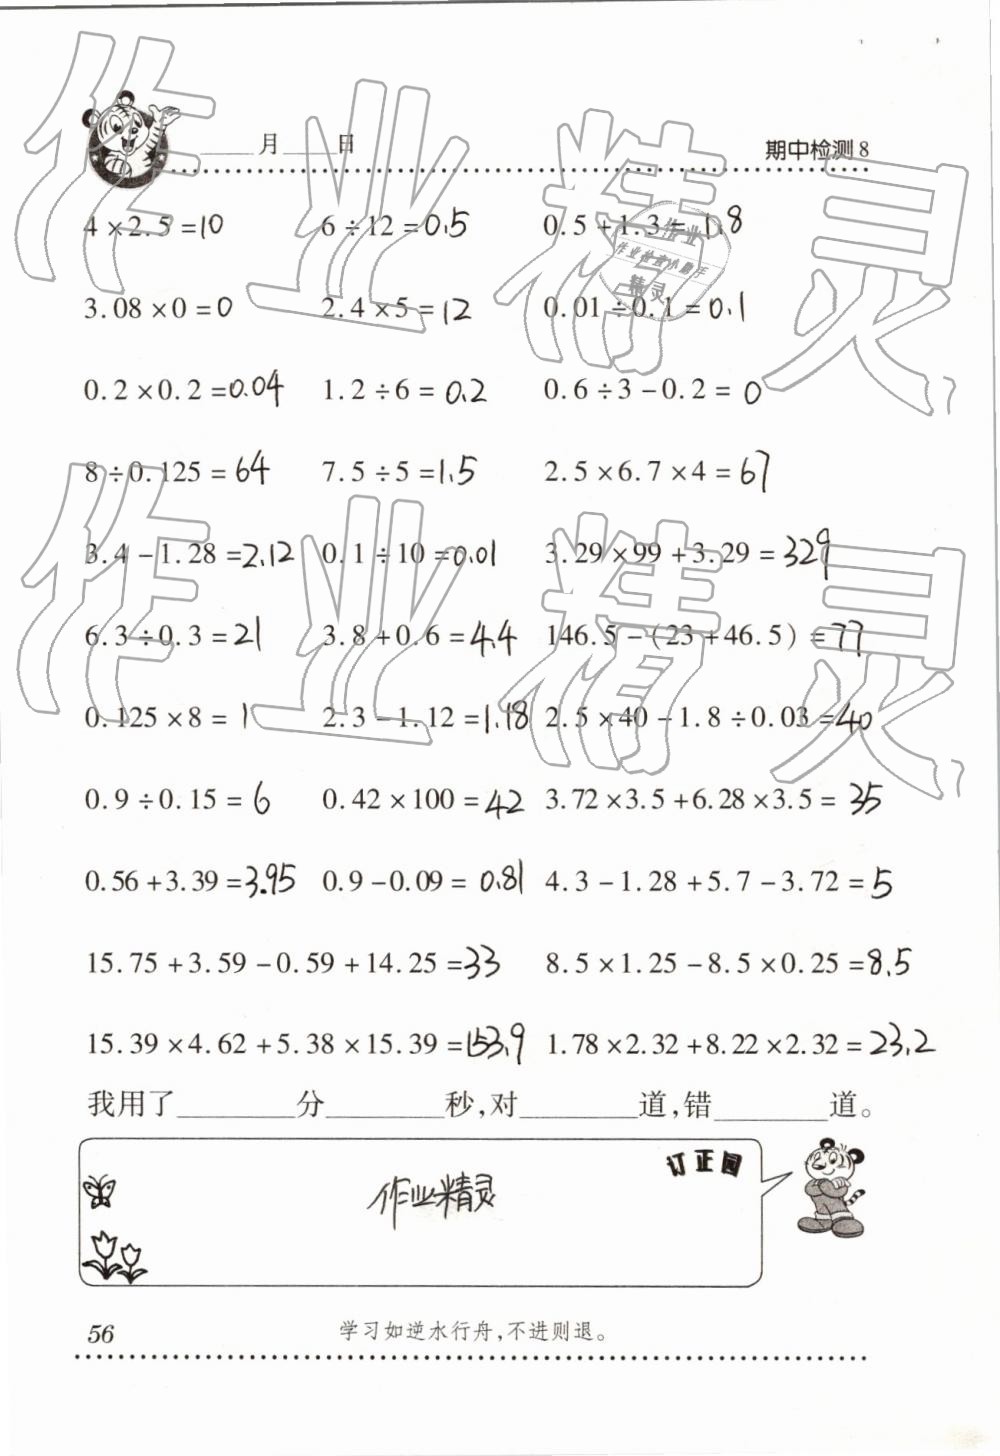 月　日　期中检测8
4×2.5=10　6÷12=0.5　0.5+1.3=1.8
3.08×0=0　2.4×5=12　0.01÷0.1=0.1
0.2×0.2=0.04　1.2÷6=0.2　0.6÷3-0.2=0
8÷0.125=64　7.5÷5=1.5　2.5×6.7×4=67
3.4-1.28=2.12　0.1÷10=0.01　3.29×99+3.29=329
6.3÷0.3=21　3.8+0.6=4.4　146.5-(23+46.5)=77
0.125×8=1　2.3-1.12=1.18　2.5×40-1.8÷0.03=40
0.9÷0.15=6　0.42×100=42　3.72×3.5+6.28×3.5=35
0.56+3.39=3.95　0.9-0.09=0.81　4.3-1.28+5.7-3.72=5
15.75+3.59-0.59+14.25=33　8.5×1.25-8.5×0.25=8.5
15.39×4.62+5.38×15.39=153.9　1.78×2.32+8.22×2.32=23.2
我用了____分____秒,对____道,错____道。
订正园
作业精灵
56　学习如逆水行舟,不进则退。
作业精灵
作业精灵
作业
作业检查小助手
精灵